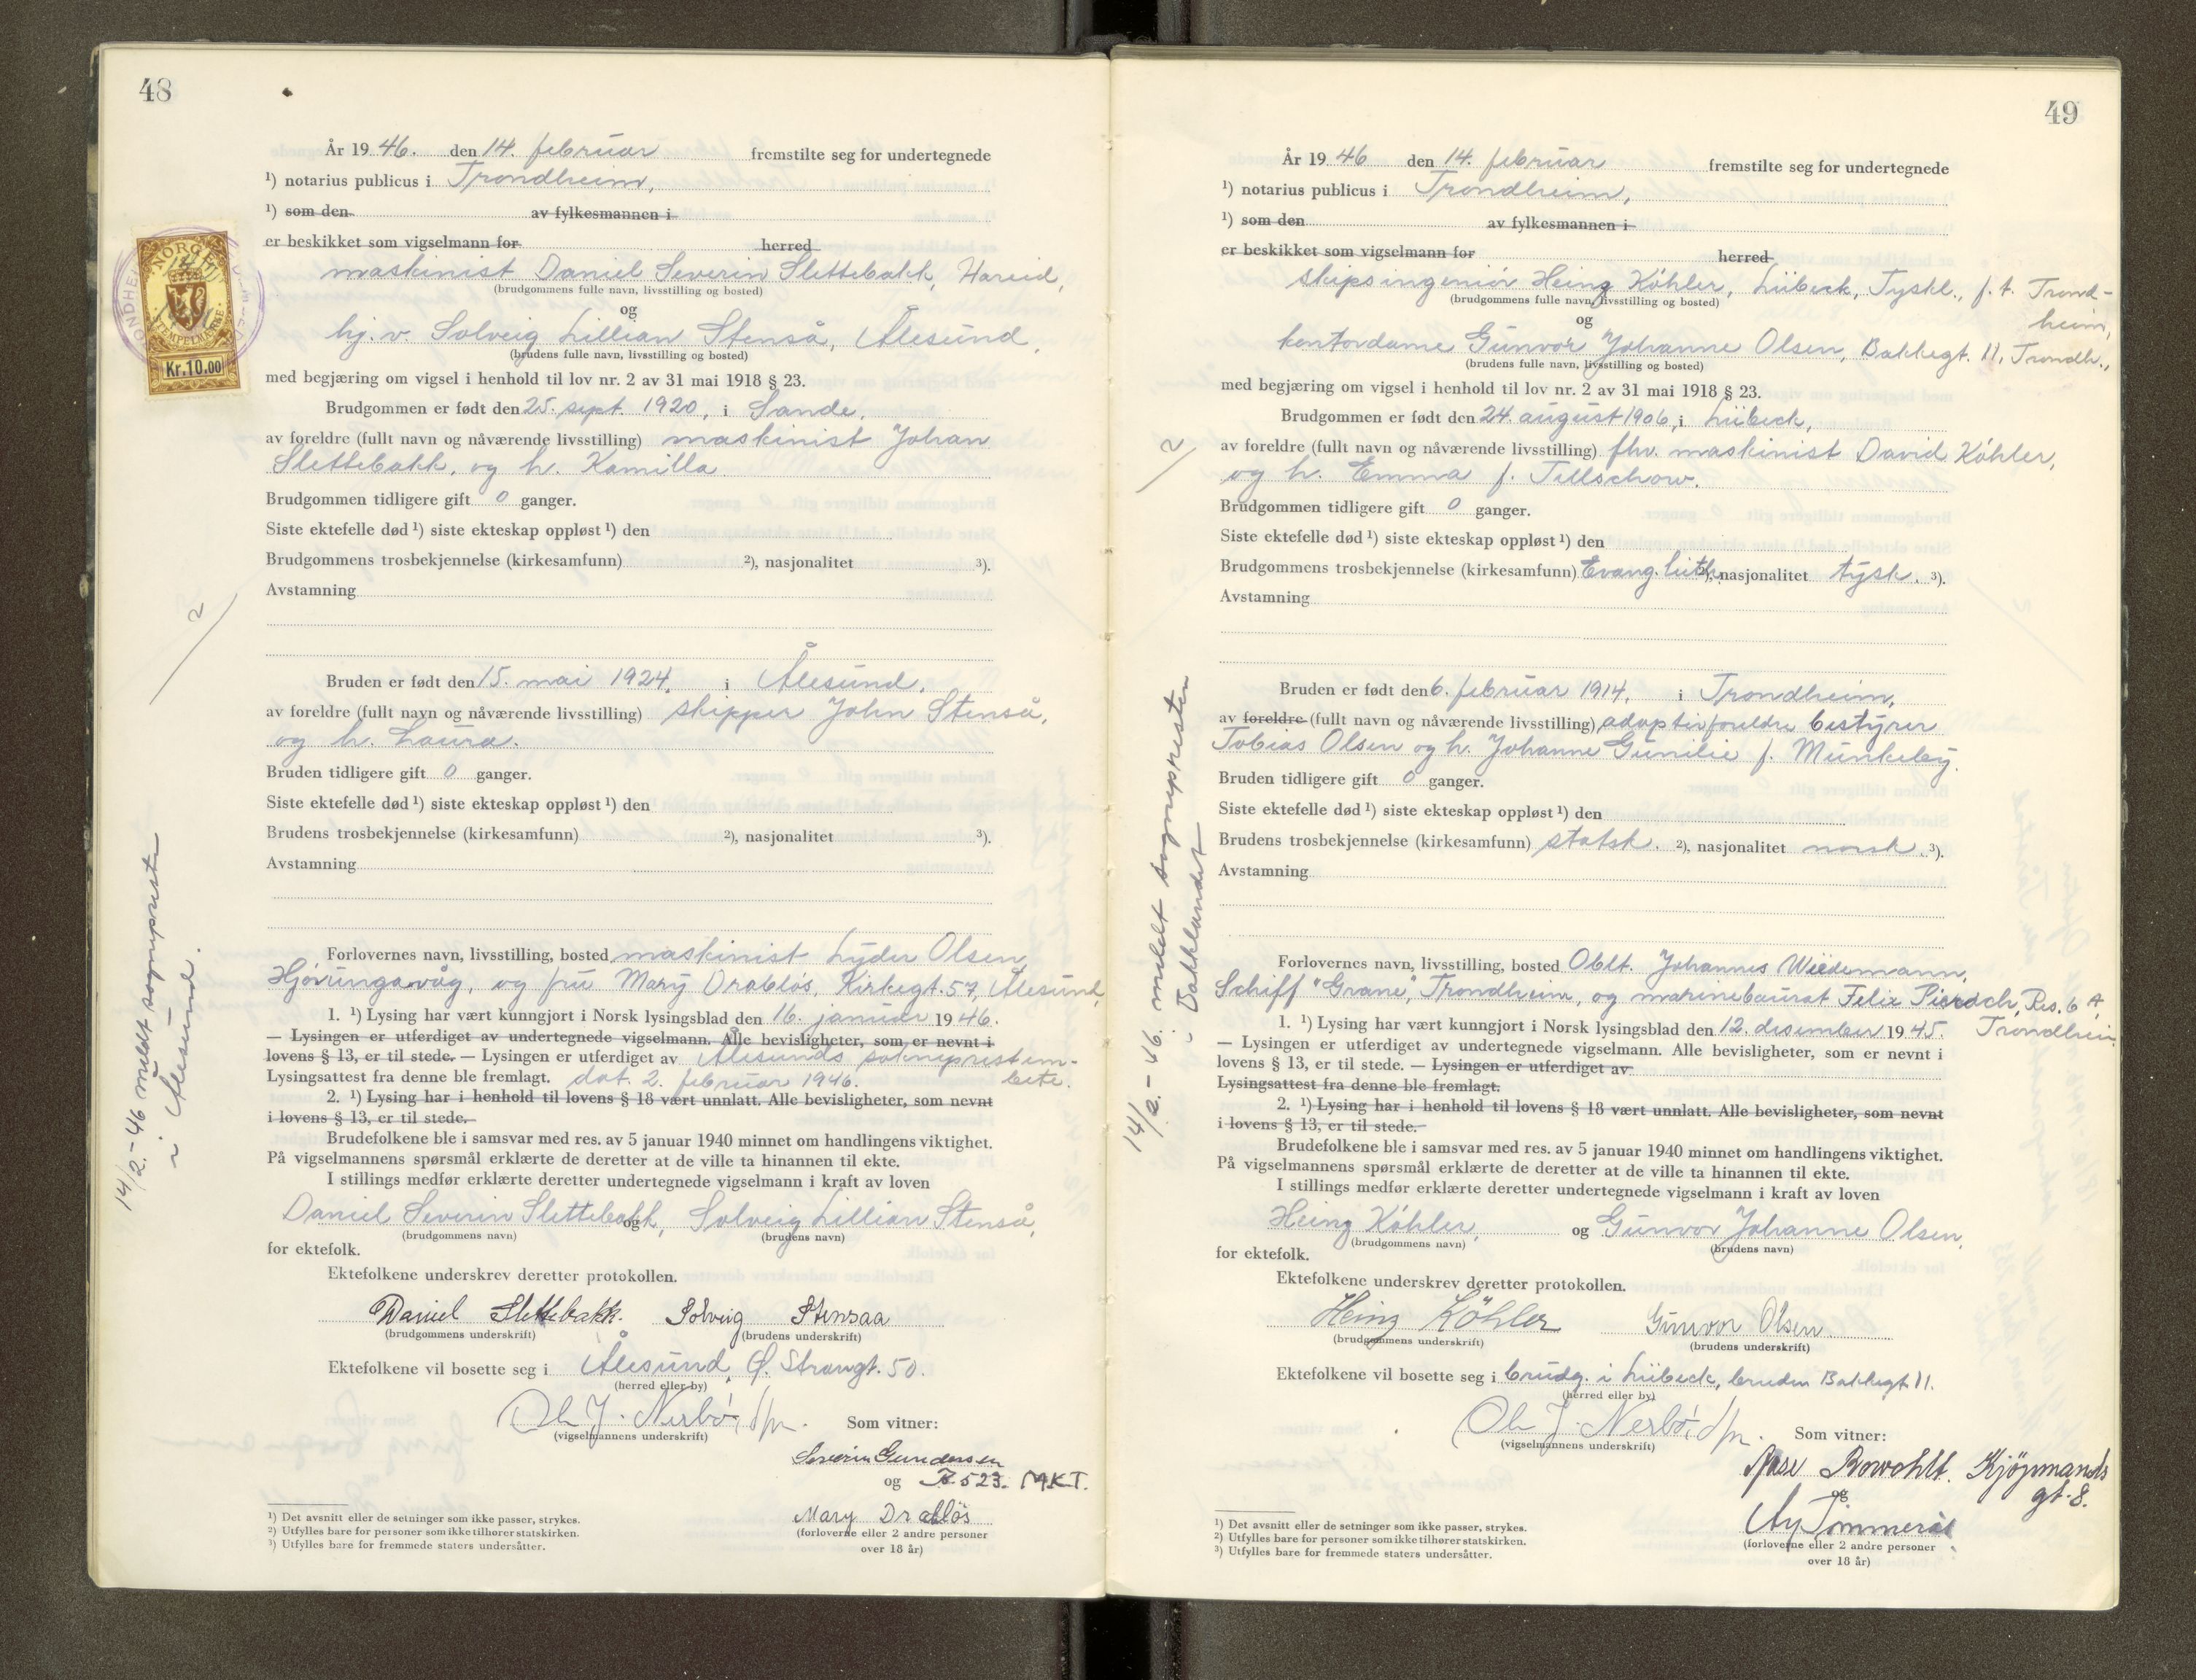 48
År 1946. den 14. februar fremstilte seg for undertegnede
¹) notarius publicus i Trondheim,
¹) som den av fylkesmannen i
er beskikket som vigselmann for herred
maskinist Daniel Severin Slettebakk, Hareid,
(brudgommens fulle navn, livsstilling og bosted)
og
hj. v. Solveig Lillian Stenså, Ålesund,
(brudens fulle navn, livsstilling og bosted)
med begjæring om vigsel i henhold til lov nr. 2 av 31 mai 1918 § 23.
Brudgommen er født den 25. sept. 1920, i Sande,
av foreldre (fullt navn og nåværende livsstilling) maskinist Johan
Slettebakk, og h. Kamilla
Brudgommen tidligere gift 0 ganger.
Siste ektefelle død ¹) siste ekteskap oppløst ¹) den
Brudgommens trosbekjennelse (kirkesamfunn) ²), nasjonalitet ³).
Avstamning
Bruden er født den 15. mai 1924, i Ålesund,
av foreldre (fullt navn og nåværende livsstilling) skipper John Stenså,
og h. Laura.
Bruden tidligere gift 0 ganger.
Siste ektefelle død ¹) siste ekteskap oppløst ¹) den
Brudens trosbekjennelse (kirkesamfunn) ²), nasjonalitet ³).
Avstamning
Forlovernes navn, livsstilling, bosted maskinist Lyder Olsen,
Hjørungavåg, og fru Mary Drabløs, Kirkegt. 57, Ålesund,
1. ¹) Lysing har vært kunngjort i Norsk lysingsblad den 16. januar 1946.
— Lysingen er utferdiget av undertegnede vigselmann. Alle bevisligheter, som er nevnt i
lovens § 13, er til stede. — Lysingen er utferdiget av Ålesunds sokneprestem-
Lysingsattest fra denne ble fremlagt. dat. 2. februar 1946. bete.
2. ¹) Lysing har i henhold til lovens § 18 vært unnlatt. Alle bevisligheter, som nevnt
i lovens § 13, er til stede.
Brudefolkene ble i samsvar med res. av 5 januar 1940 minnet om handlingens viktighet.
På vigselmannens spørsmål erklærte de deretter at de ville ta hinannen til ekte.
I stillings medfør erklærte deretter undertegnede vigselmann i kraft av loven
Daniel Severin Slettebakk, og Solveig Lillian Stenså,
(brudgommens navn) (brudens navn)
for ektefolk.
Ektefolkene underskrev deretter protokollen.
Daniel Slettebakk. Solveig Stensaa
(brudgommens underskrift) (brudens underskrift)
Ektefolkene vil bosette seg i Ålesund, Ø. Strangt. 50.
(herred eller by)
Ole J. Nerbø, Som vitner:
(vigselmannens underskrift)
Severin Gundersen
og R 523. MKT.
Mary Drabløs
(forloverne eller 2 andre personer
over 18 år)
¹) Det avsnitt eller de setninger som ikke passer, strykes.
²) Utfylles bare for personer som ikke tilhører statskirken.
³) Utfylles bare for fremmede staters undersåtter.
NORGE
STEMPELMERKE
Kr.10.00
2
14/2-46 meldt sognepresten
i Ålesund.
49
År 1946 den 14. februar fremstilte seg for undertegnede
¹) notarius publicus i Trondheim,
¹) som den av fylkesmannen i
er beskikket som vigselmann for herred
skipsingeniør Heinz Köhler, Lübeck, Tyskl., f. t. Trond-
heim,
(brudgommens fulle navn, livsstilling og bosted)
og
kontordame Gunvor Johanne Olsen, Bakkegt. 11, Trondh.,
(brudens fulle navn, livsstilling og bosted)
med begjæring om vigsel i henhold til lov nr. 2 av 31 mai 1918 § 23.
Brudgommen er født den 24. august 1906, i Lübeck,
av foreldre (fullt navn og nåværende livsstilling) fhv. maskinist David Köhler,
og h. Emma f. Tellschow.
Brudgommen tidligere gift 0 ganger.
Siste ektefelle død ¹) siste ekteskap oppløst ¹) den
Brudgommens trosbekjennelse (kirkesamfunn) Evang. luth. ²), nasjonalitet tysk. ³).
Avstamning
Bruden er født den 6. februar 1914, i Trondheim,
av foreldre (fullt navn og nåværende livsstilling) adoptivforeldre bestyrer
Tobias Olsen og h. Johanne Gunilie f. Munkeby.
Bruden tidligere gift 0 ganger.
Siste ektefelle død ¹) siste ekteskap oppløst ¹) den
Brudens trosbekjennelse (kirkesamfunn) statsk. ²), nasjonalitet norsk. ³).
Avstamning
Forlovernes navn, livsstilling, bosted Oblt. Johannes Wiedemann,
Schiff "Grane", Trondheim, og marinebaurat Felix Res. 6 A,
Trondheim
1. ¹) Lysing har vært kunngjort i Norsk lysingsblad den 12. desember 1945.
— Lysingen er utferdiget av undertegnede vigselmann. Alle bevisligheter, som er nevnt i
lovens § 13, er til stede. — Lysingen er utferdiget av
Lysingsattest fra denne ble fremlagt.
2. ¹) Lysing har i henhold til lovens § 18 vært unnlatt. Alle bevisligheter, som nevnt
i lovens § 13, er til stede.
Brudefolkene ble i samsvar med res. av 5 januar 1940 minnet om handlingens viktighet.
På vigselmannens spørsmål erklærte de deretter at de ville ta hinannen til ekte.
I stillings medfør erklærte deretter undertegnede vigselmann i kraft av loven
Heinz Köhler, og Gunvor Johanne Olsen,
(brudgommens navn) (brudens navn)
for ektefolk.
Ektefolkene underskrev deretter protokollen.
Heinz Köhler Gunvor Olsen
(brudgommens underskrift) (brudens underskrift)
Ektefolkene vil bosette seg i brudg. i Lübeck, bruden Bakkegt 11.
(herred eller by)
Ole J. Nerbø, Som vitner:
(vigselmannens underskrift)
Aase Rowohlt. Kjøpmands
gt. 8.
og
Tømmerås
(forloverne eller 2 andre personer
over 18 år)
¹) Det avsnitt eller de setninger som ikke passer, strykes.
²) Utfylles bare for personer som ikke tilhører statskirken.
³) Utfylles bare for fremmede staters undersåtter.
2
14/2-46. meldt sognepresten
i Bakklandet